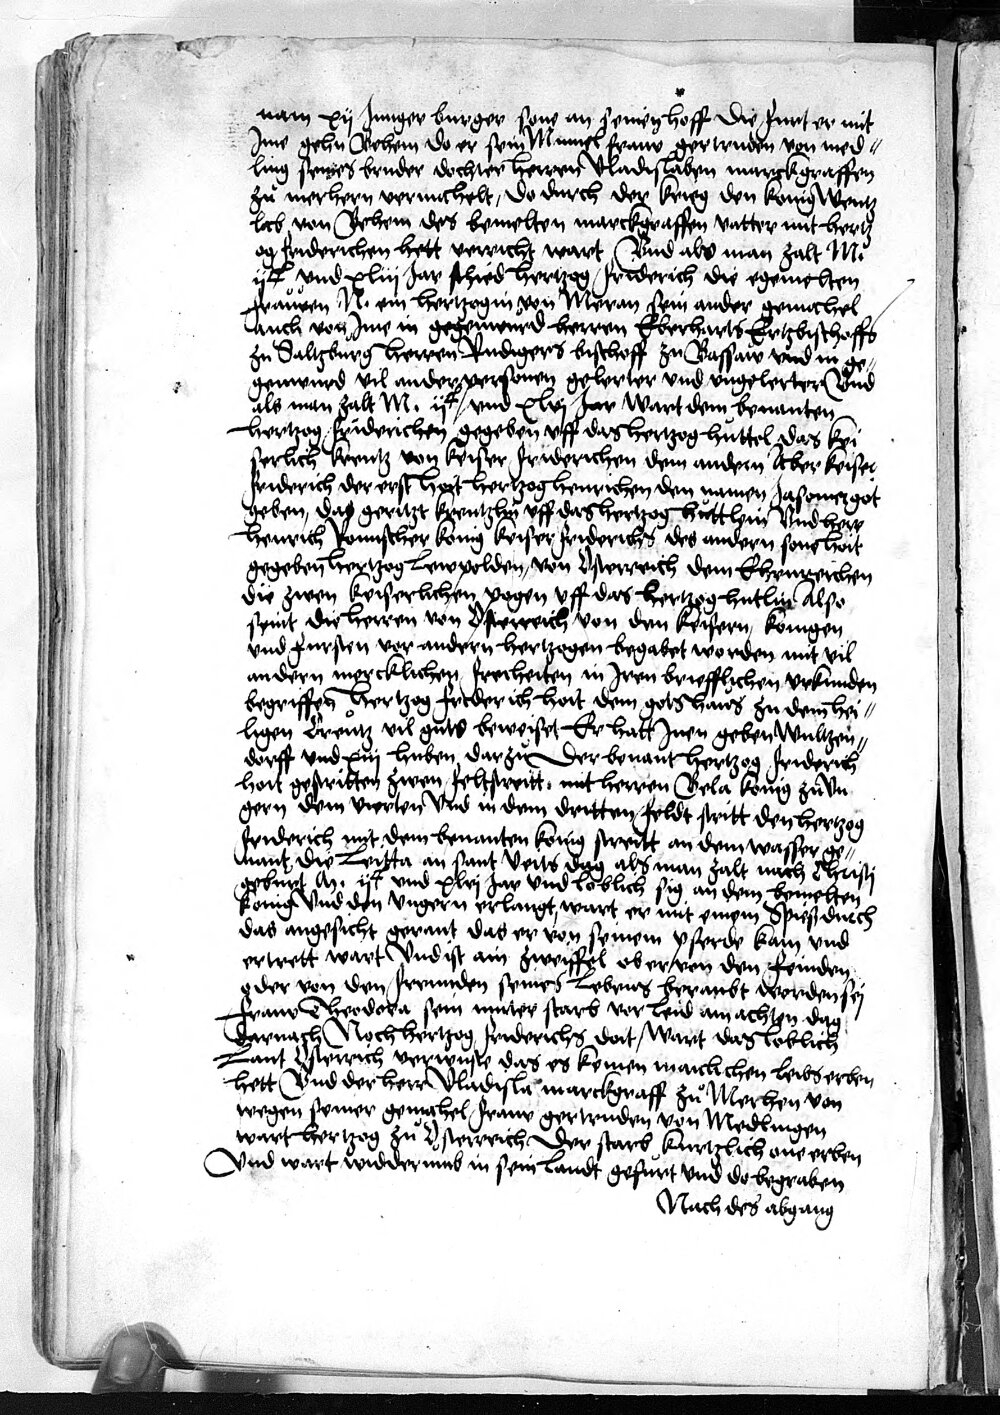 nam xij Junger burger sone an seinen hoff Die furt er mit
Jme gehn Behem do er sein Mumel frauw gertruden von med„
ling seines bruder dochter herren Vladislaben marckgraffen
zu merhern vermehelt, Do durch der krieg den konig Wentz
lab von Behem des bemelten marckgraffen vatter mit hertz
og friderichen hett verricht wart Vnd als man zalt M.
ijᶜ vnd xliij Jar schied hertzog friderich die egemelten
frauwen N. ein hertzogin von Meran sein ander gemahel
auch von Jme in gegenwurd herren Eberharts Ertzbischoffs
zu Saltzburg herren Rudigers bischoff zu Bassaw vnd in ge„
genwurd vil ander personen gelerter vnd vngelerter Vnd
als man zalt M. ijᶜ vnd xlvj Jar wart dem benanten
hertzog friderichen gegeben vff das hertzog huttel das kei
serlich kreutz von keiser friderichen dem andern Aber keiser
friderich der erst hait hertzog henrichen den namen Jasomergot
geben, das geritzt kreutzlin vff das hertzog huttlein Vnd herr
henrich Romischer konig keiser friderichs des andern sone hait
gegeben hertzog Lewpolden, von Osterreich dem Ehenreichen
die zwen keiserlichen pogen vff das hertzog hutlin Also
seint die herren von Osterreich von den keisern, konigen
vnd fursten vor andern hertzogen begabet worden mit vil
andern mercklichen freiheiten in Jren briefflichen vrkunden
begriffen hertzog friderich hait dem gotshaus zu dem hei„
ligen Creutz vil guts beweiset Er hatt Jnen geben Wultzen„
dorff vnd xiij huben darzu Der benant hertzog friderich
hait gestritten zwen feltstreitt. mit herren Bela konig zu Vn
gern dem vierten Vnd in dem dritten feldt stritt den hertzog
friderich mit dem benanten konig streitt an dem wasser ge„
nant die Leitta an sant Veits dag als man zalt nach Christi
geburt M. ijᶜ vnd xlvj Jar vnd loblich sig an dem bemelten
konig Vnd den Vngern erlangt, wart er mit einem spieß durch
das angesicht gerant das er von seinem pferde kam vnd
ertrett wart Vnd ist ain zweiffel ob er von den feinden
oder von den freunden seines Lebens beraubt worden sej
Frauw Theodora sein muter starb vor leid am achten dag
darnach Noch hertzog friderichs doit, wart das loblich
Lant Osterrich verwuste das es keinen manlichen leibs erben
hett Vnd der herr Vladisla marckgraff zu Merhen von
wegen seiner gemahel frauw gertruden von Medlingen
wart hertzog zu Osterreich Der starb kurtzlich one erben
Vnd wart widderumb in sein Landt gefurt vnd do begraben
Nach des abgang